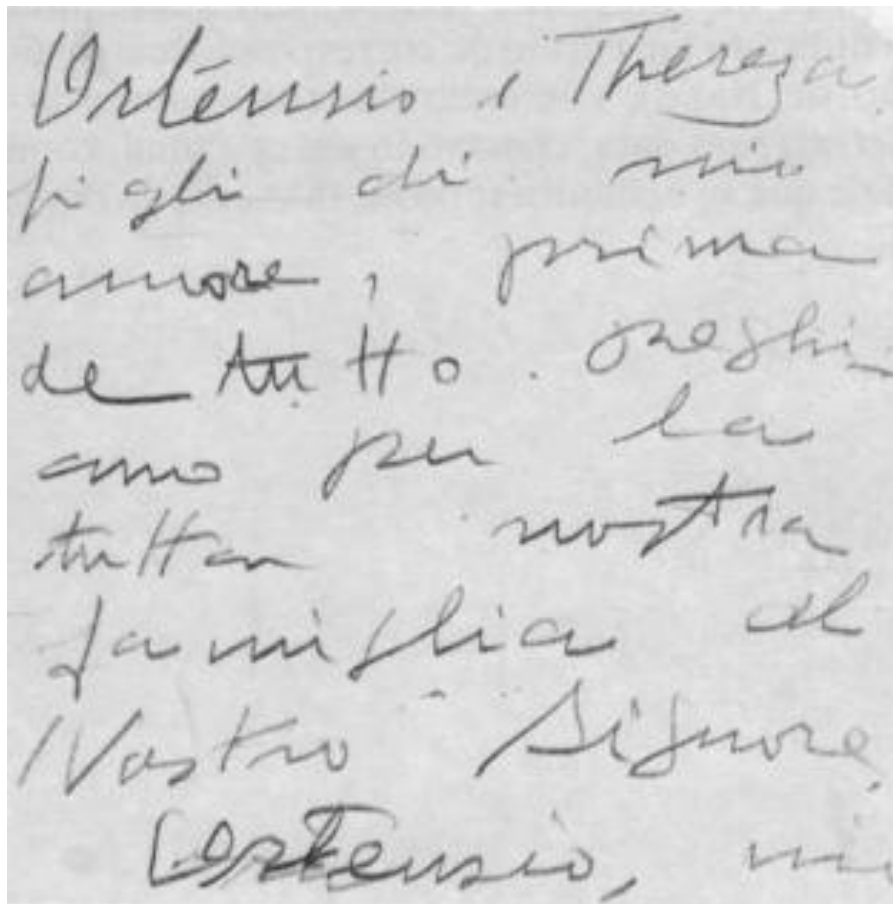 Ortensio i Thereza
figli di mio
amore, prima
de tutto preghi
amo per la
tutta nostra
famiglia al
Nostro Signore,
Ortensio, mi